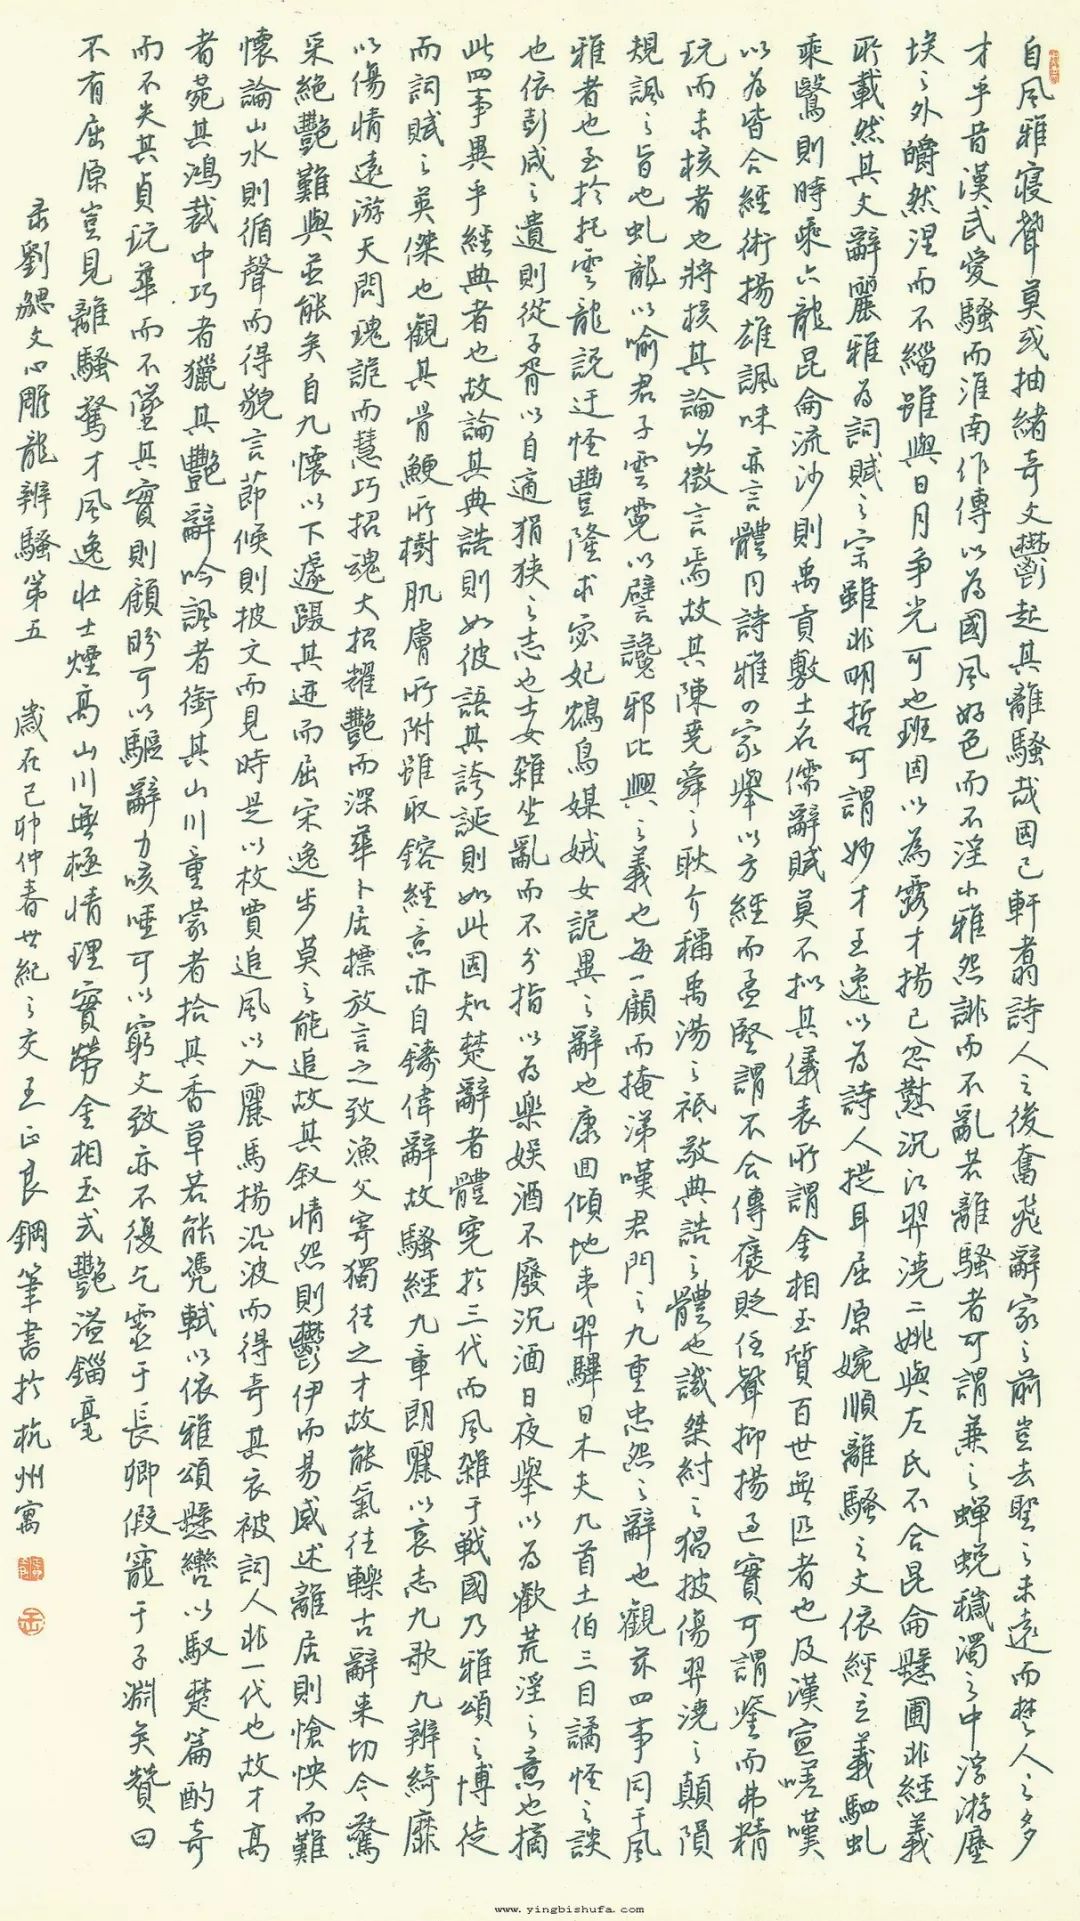 自風雅寢聲莫或抽緒奇文鬱起其離騷哉固已軒翥詩人之後奮飛辭家之前豈去聖之未遠而楚人之多
才乎昔漢武愛騷而淮南作傳以為國風好色而不淫小雅怨誹而不亂若離騷者可謂兼之蟬蛻穢濁之中浮游塵
埃之外皭然涅而不緇雖與日月爭光可也班固以為露才揚己忿懟沉江羿澆二姚與左氏不合昆侖懸圃非經義
所載然其文辭麗雅為詞賦之宗雖非明哲可謂妙才王逸以為詩人提耳屈原婉順離騷之文依經立義駟虬
乘鷖則時乘六龍昆侖流沙則禹貢敷土名儒辭賦莫不擬其儀表所謂金相玉質百世無匹者也及漢宣嗟嘆
以為皆合經術揚雄諷味亦言體同詩雅四家舉以方經而孟堅謂不合傳褒貶任聲抑揚過實可謂鑒而弗精
玩而未核者也將核其論必徵言焉故其陳堯舜之耿介稱禹湯之祗敬典誥之體也譏桀紂之猖披傷羿澆之顛隕
規諷之旨也虬龍以喻君子雲霓以譬讒邪比興之義也每一顧而掩涕嘆君門之九重忠怨之辭也觀茲四事同于風
雅者也至於托雲龍說迂怪豐隆求宓妃鴆鳥媒娀女詭異之辭也康回傾地夷羿彃日木夫九首土伯三目譎怪之談
也依彭咸之遺則從子胥以自適狷狹之志也士女雜坐亂而不分指以為樂娛酒不廢沉湎日夜舉以為歡荒淫之意也摘
此四事異乎經典者也故論其典誥則如彼語其誇誕則如此固知楚辭者體憲於三代而風雜于戰國乃雅頌之博徒
而詞賦之英傑也觀其骨鯁所樹肌膚所附雖取鎔經意亦自鑄偉辭故騷經九章朗麗以哀志九歌九辨綺靡
以傷情遠游天問瑰詭而慧巧招魂大招耀艷而深華卜居標放言之致漁父寄獨往之才故能氣往轢古辭來切今驚
采絕艷難與並能矣自九懷以下遽躡其迹而屈宋逸步莫之能追故其敘情怨則鬱伊而易感述離居則愴怏而難
懷論山水則循聲而得貌言節候則披文而見時是以枚賈追風以入麗馬揚沿波而得奇其衣被詞人非一代也故才高
者菀其鴻裁中巧者獵其艷辭吟諷者銜其山川童蒙者拾其香草若能憑軾以依雅頌懸轡以馭楚篇酌奇
而不失其貞玩華而不墜其實則顧盼可以驅辭力咳唾可以窮文致亦不復乞靈于長卿假寵于子淵矣贊曰
不有屈原豈見離騷驚才風逸壯士煙高山川無極情理實勞金相玉式艷溢錙毫
录劉勰文心雕龍辨騷第五 歲在己卯仲春世紀之交王正良鋼筆書於杭州寓
www.yingbishufa.com